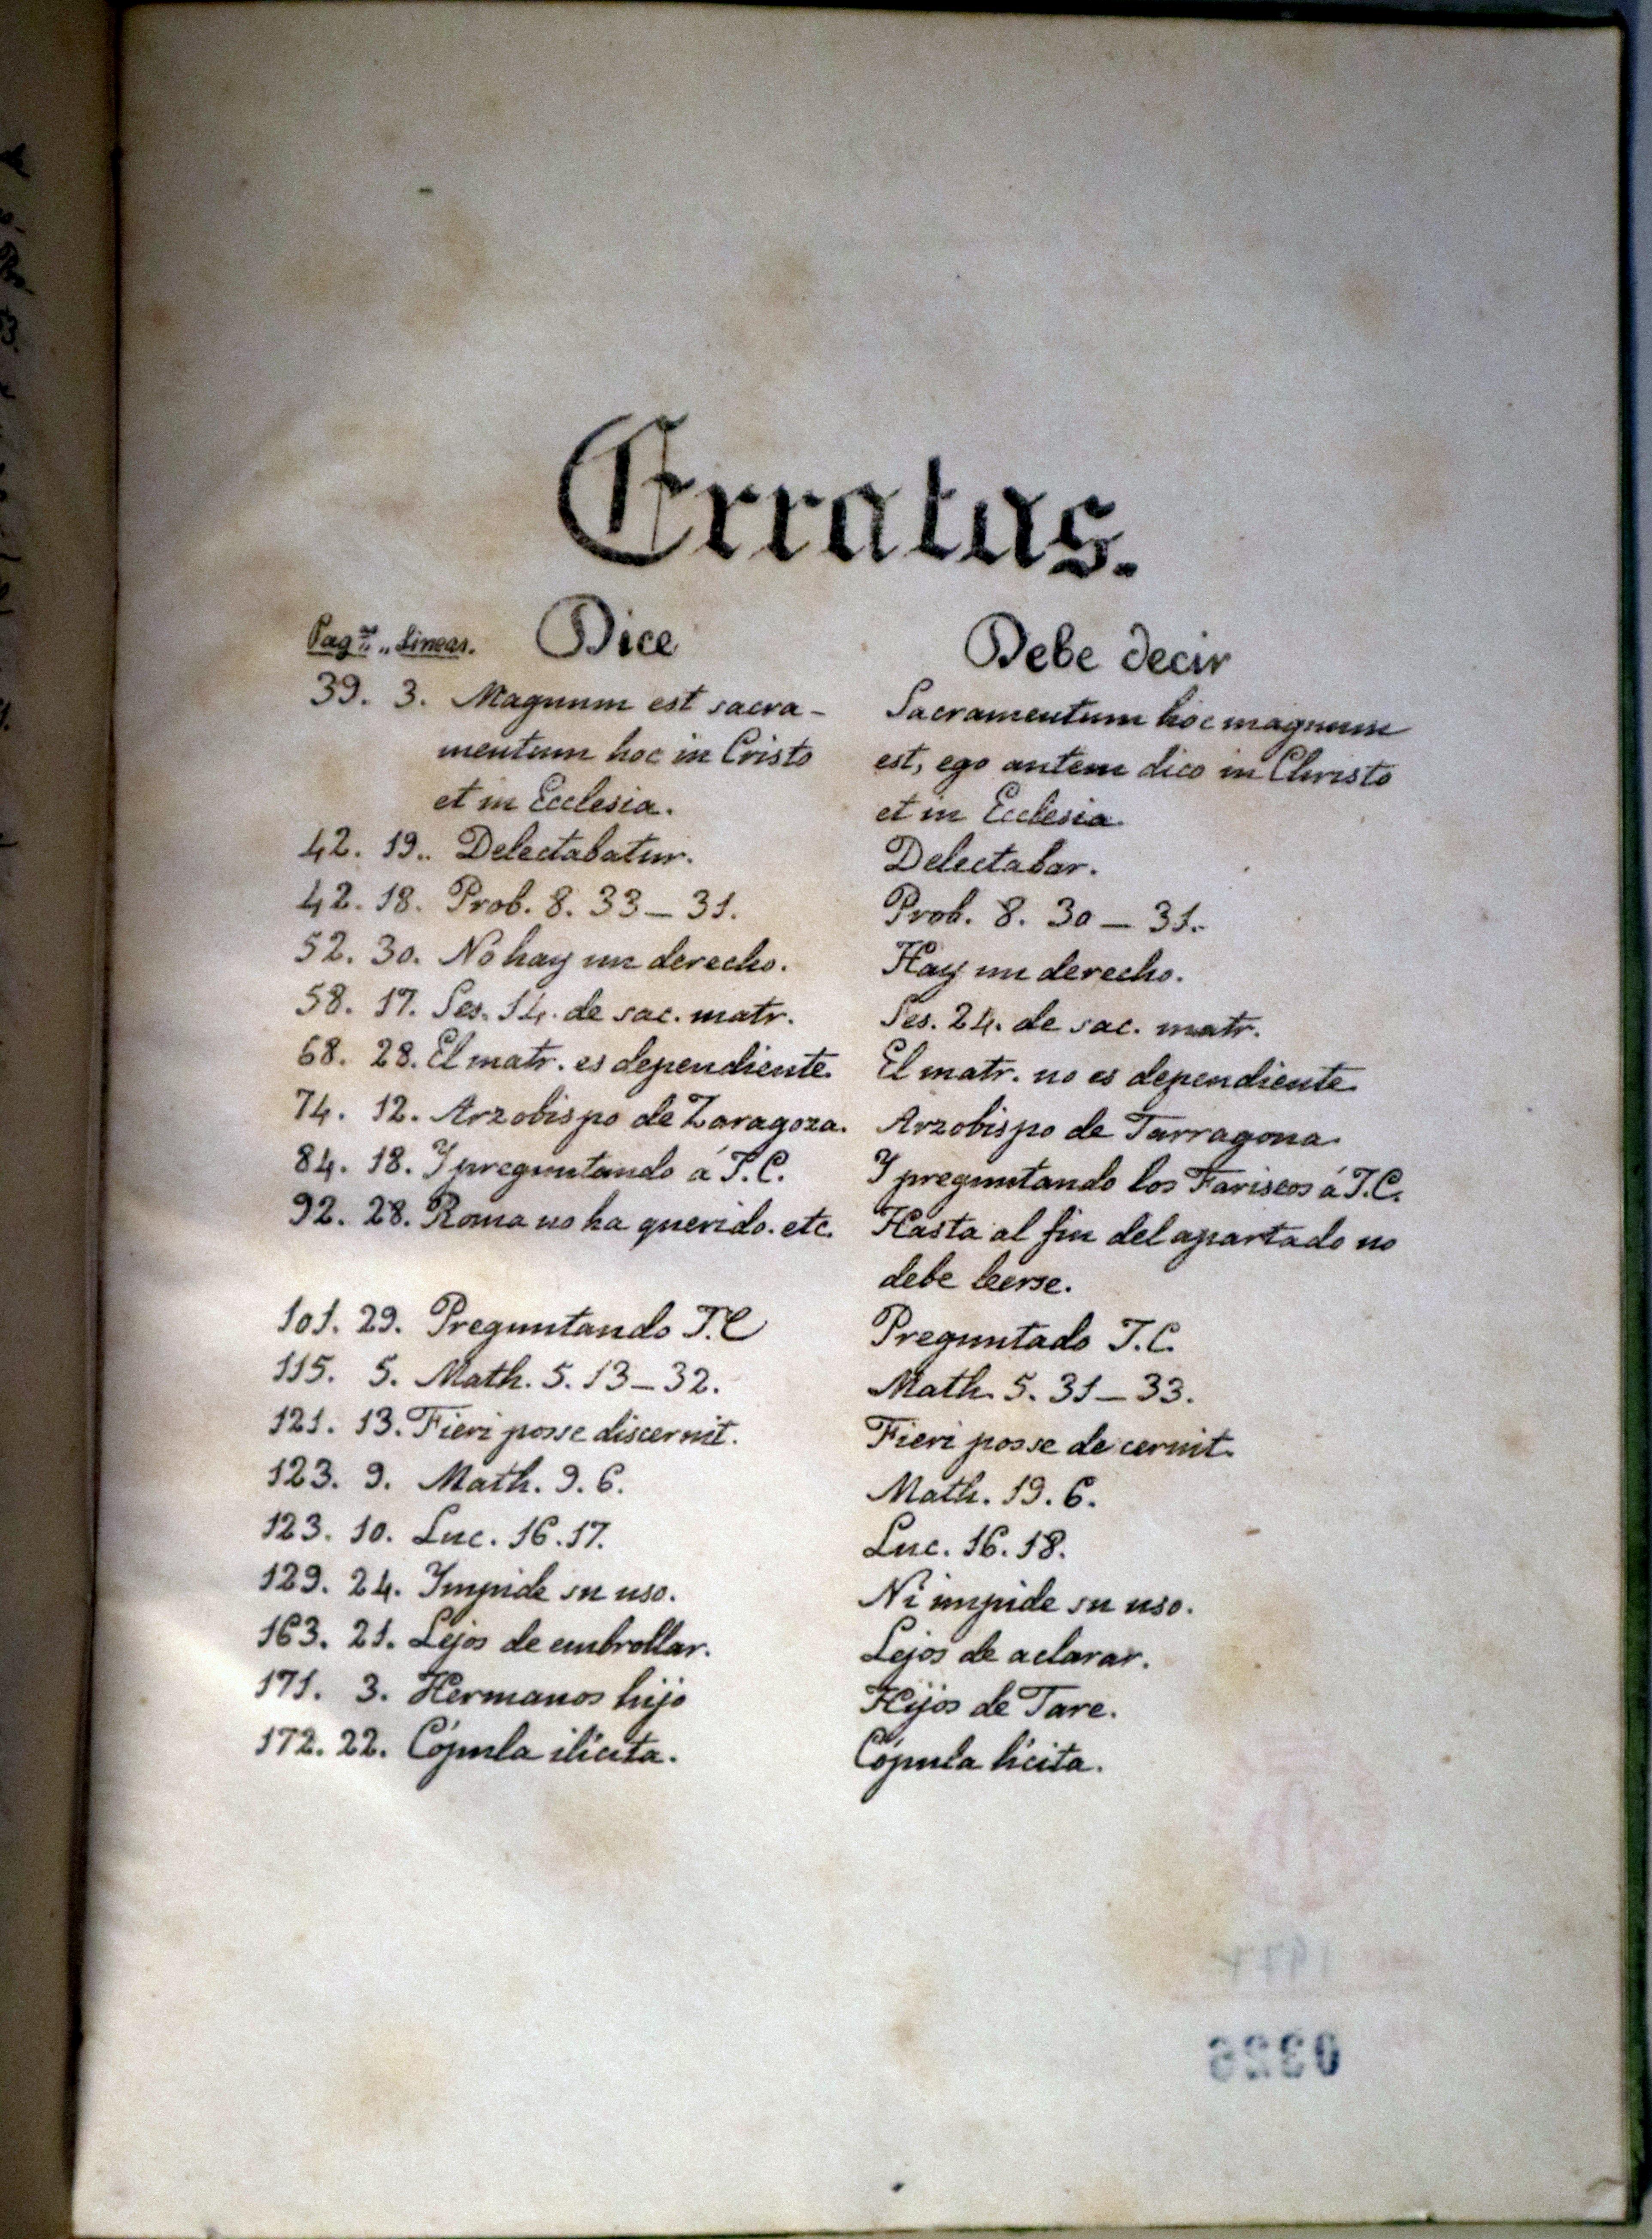 Erratas.
Pag.ᵃˢ „ Lineas. Dice Debe decir
39. 3. Magnum est sacra- Sacramentum hoc magnum
mentum hoc in Cristo est, ego antem dico in Christo
et in Ecclesia. et in Ecclesia.
42. 19.. Delectabatur. Delectabar.
42. 18. Prob. 8. 33-31. Prob. 8. 30-31.
52. 30. No hay un derecho. Hay un derecho.
58. 17. Ses. 14. de sac. matr. Ses. 24. de sac. matr.
68. 28. El matr. es dependiente. El matr. no es dependiente.
74. 12. Arzobispo de Zaragoza. Arzobispo de Tarragona.
84. 18. Y preguntando á J.C. Y preguntando los Fariseos á J.C.
92. 28. Roma no ha querido. etc. Hasta al fin del apartado no
debe leerse.
101. 29. Preguntando J.C Preguntado J.C.
115. 5. Math. 5. 13-32. Math. 5. 31-33.
121. 13. Fieri posse discernit. Fieri posse decernit.
123. 9. Math. 9. 6. Math. 19. 6.
123. 10. Luc. 16. 17. Luc. 16. 18.
129. 24. Impide su uso. Ni impide su uso.
163. 21. Lejos de embrollar. Lejos de aclarar.
171. 3. Hermanos hijo Hijos de Tare.
172. 22. Cópula ilícita. Cópula lícita.
0326